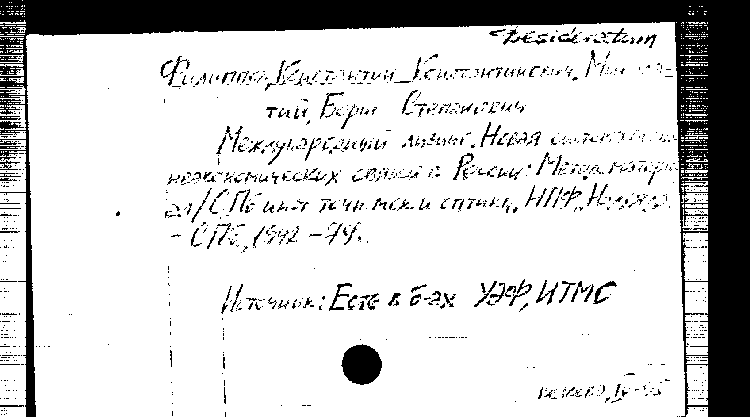 Desideratum
Филиппов, Константин Константинович,
тий, Борис Степанович
Международный лизинг. Новая
неэкономических связей в России: Метод. матери-
ал / СПб ин-т точн. мех. и оптики, НПФ
- СПб, 1992 - 74.
Источник: Есть в б-ах УЭФ, ИТМО